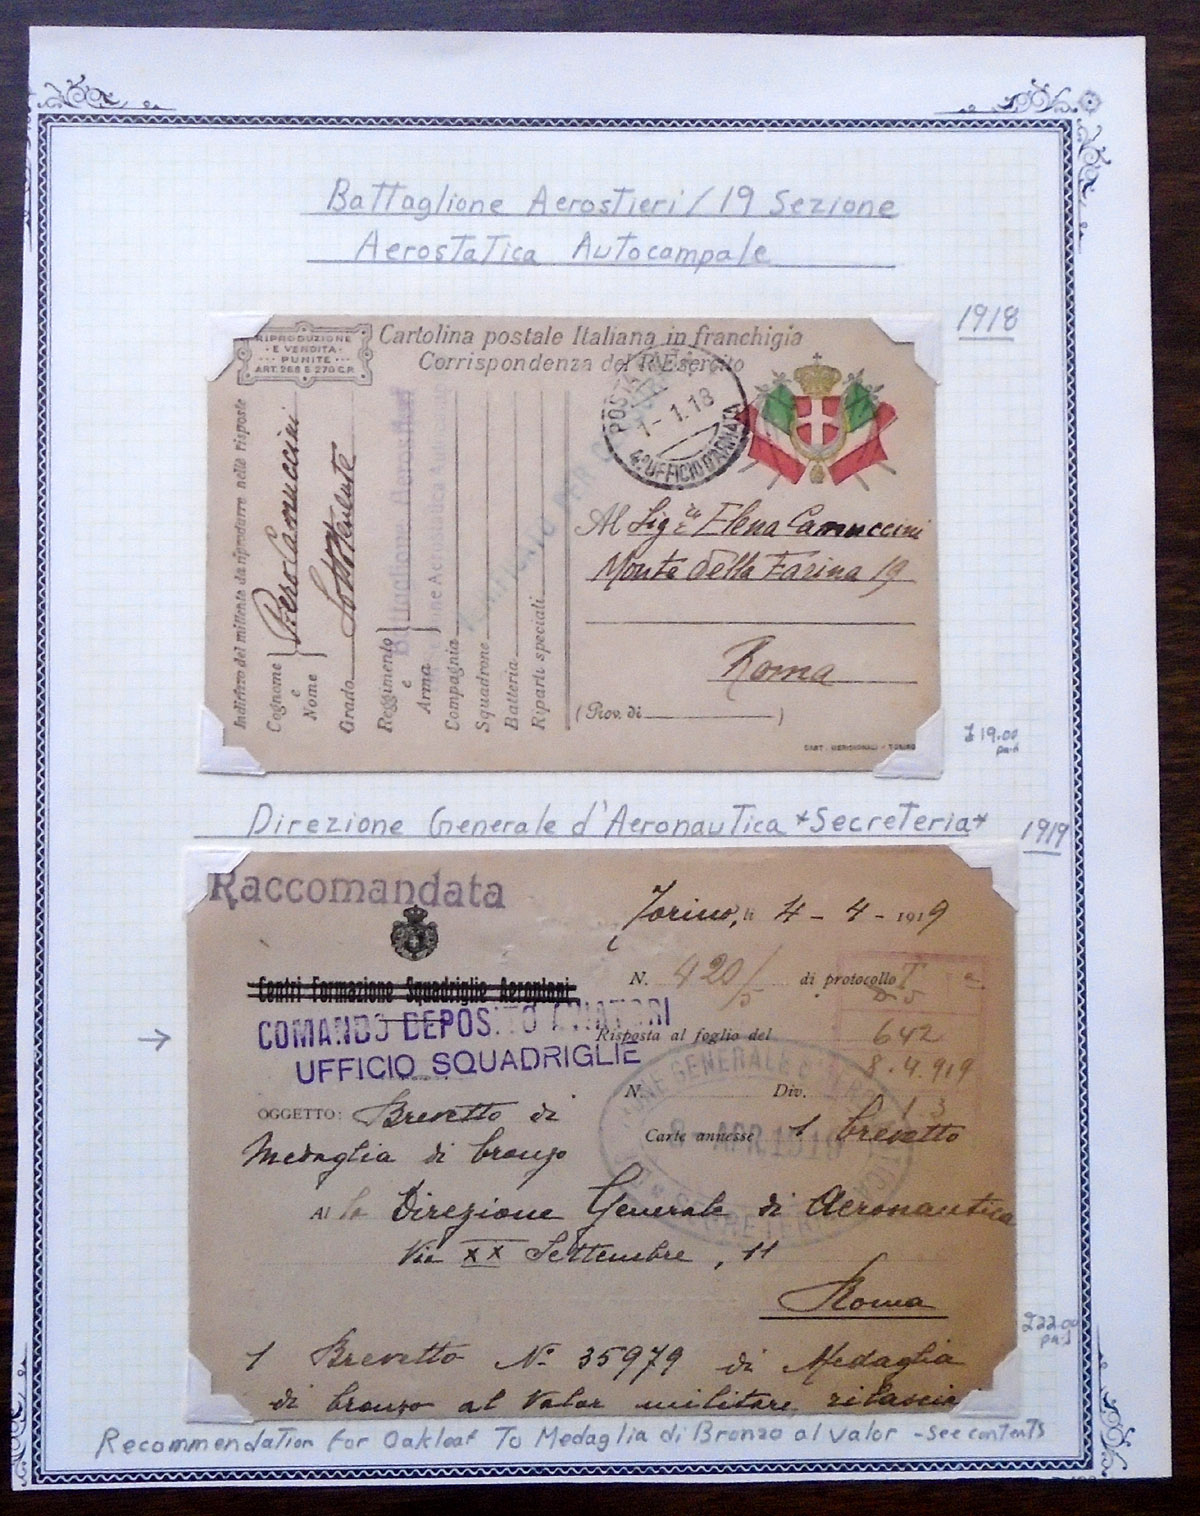 Battaglione Aerostieri / 19 Sezione
Aerostatica Autocampale
1918
RIPRODUZIONE
E VENDITA
PUNITE
ART. 268 E 270 C.P.
Cartolina postale Italiana in franchigia
Corrispondenza del R. Esercito
POSTA MILITARE
1-1.18
4º UFFICIO D'ARMATA
Indirizzo del mittente da riprodurre nelle risposte
Cognome e Nome
Piero Camuccini
Grado
Sottotenente
Reggimento e Arma
Battaglione Aerostieri
Aerostatica Autocampale
Compagnia
Squadrone
Batteria
Riparti speciali
VERIFICATO PER CENSURA
Al Sig.ra Elena Camuccini
Monte della Farina 19
Roma
(Prov. di )
£19.00
paid
Direzione Generale d'Aeronautica *Secreteria*
1919
Raccomandata
Torino, li 4 - 4 - 1919
Centri Formazione Squadriglie Aeroplani
N. 420/5 di protocollo
COMANDO DEPOSITO AVIATORI
UFFICIO SQUADRIGLIE
Risposta al foglio del
642
8.4.919
N. Div.
13
OGGETTO: Brevetto di
Medaglia di bronzo
Carte annesse 1 brevetto
DIREZIONE GENERALE D'AERONAUTICA
8 - APR. 1919
* SEGRETERIA *
Al la Direzione Generale di Aeronautica
Via XX Settembre, 11
Roma
1 Brevetto Nº 35979 di Medaglia
di bronzo al Valor militare rilascia
£22.00
paid
Recommendation for Oakleaf To Medaglia di Bronzo al valor - see contents